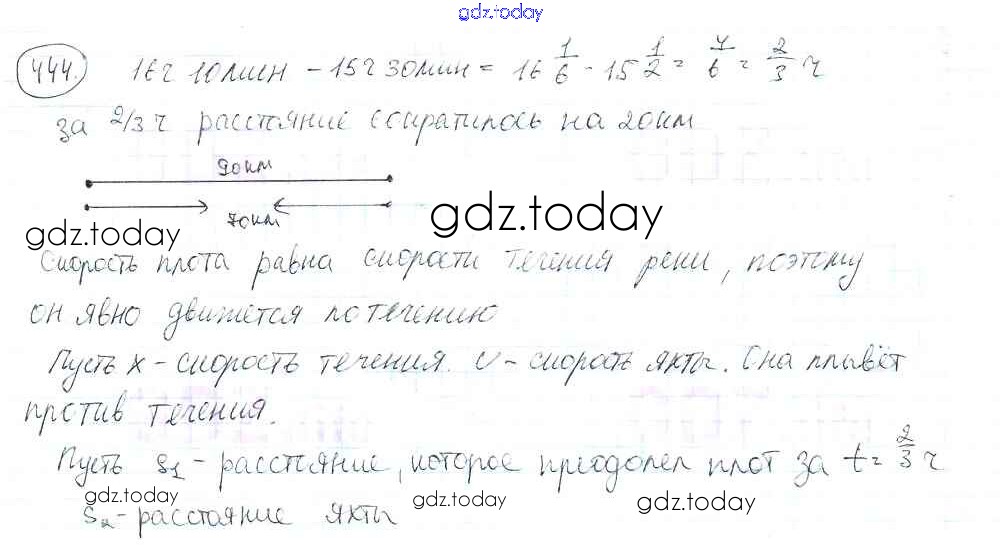 gdz.today
444. 16ч 10мин - 15ч 30мин = 16 1/6 - 15 1/2 = 4/6 = 2/3 ч
за 2/3 ч расстояние сократилось на 20км
90км
70км
gdz.today
gdz.today
Скорость плота равна скорости течения реки, поэтому
он явно движется по течению
Пусть x - скорость течения. v - скорость яхты. Она плывёт
против течения.
Пусть s₁ - расстояние, которое преодолел плот за t = 2/3 ч
gdz.today gdz.today gdz.today
s₂ - расстояние яхты